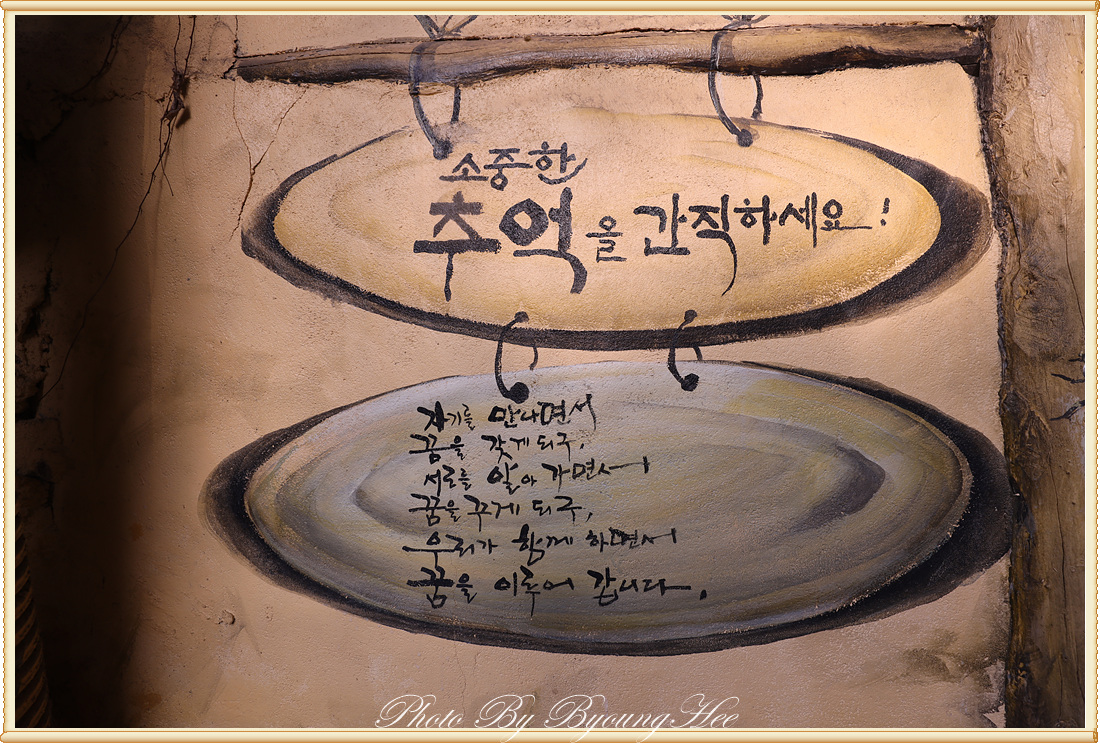 소중한
추억을 간직하세요!
자기를 만나면서
꿈을 갖게 되구,
서로를 알아 가면서
꿈을 꾸게 되구,
우리가 함께 하면서
꿈을 이루어 갑니다.
Photo By ByoungHee